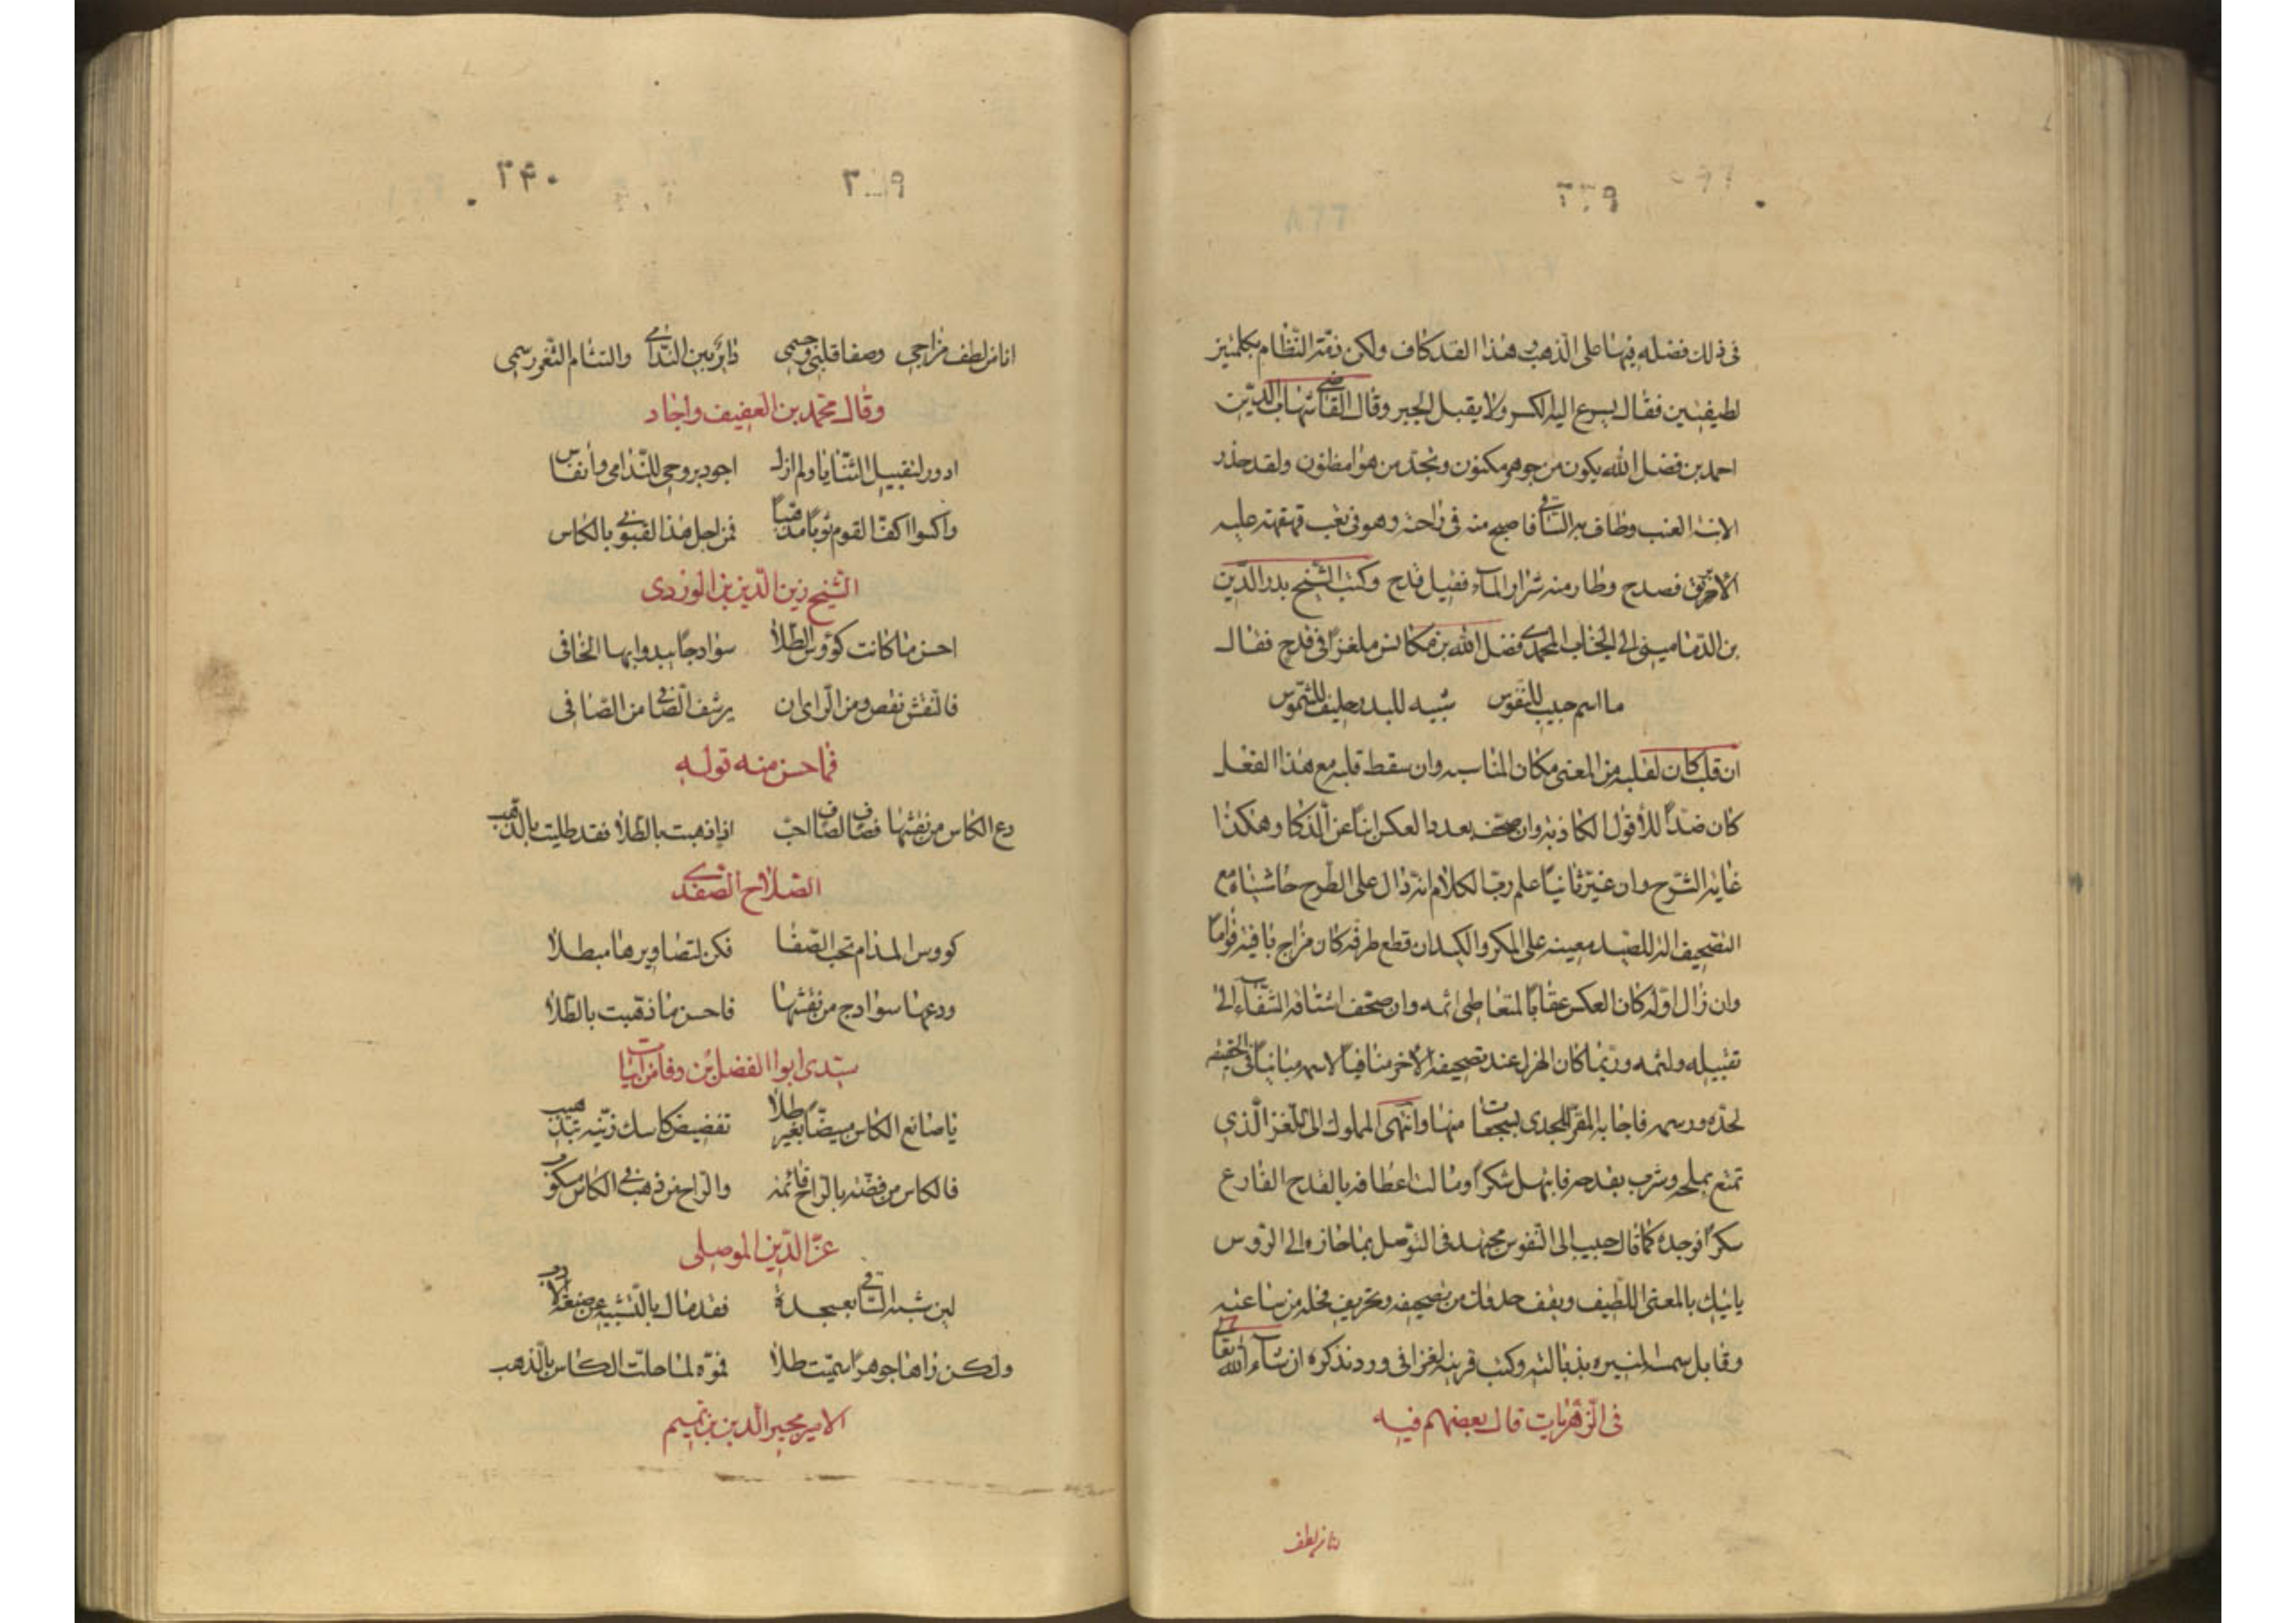 ٣٣٩
في ذلك فضله فيها على الذهب وهذا القد كاف ولكن ذمّه النظّام بكلمتين
لطيفتين فقال يسرع اليه الكسر ولا يقبل الجبر وقال القاضي شهاب الدين
احمد بن فضل الله يكون من جوهر مكنون وتجد من هوا مظنون ولقد حذر
الابنة العنب وطاف به الساقي فاصبح منه في راحة وهو في تعب قهقهة عليه
الابريق فصدح وطار منه شرار الماء فقيل قدح وكتب الشيخ بدر الدين
بن الدمامينى الى الجناب المجدى فضل الله بن مكانس ملغزًا في قدح فقال
ما اسم حبيب للنفوس شبيه للبدر حليف للشموس
ان قلب كان لقلبه من المعنى مكان المناسبه وان سقط قلبه مع هذا الفعل
كان ضدّا للأقوال الكاذبة وان صحّف بعد دا العكس ابنا عن الذكا وهكذا
غاية الشرح وان غيّر ثانيًا علم ربّ الكلام انه دال على الطرح حاشياه مع
التصحيف اله للصيد معينه على المكر والكيد ان قطع طرفه كان مزاج باقيه قوامًا
وان زال اوله كان العكس عقابًا لمتعاطى اثمه وان صحّف اشتاقه الشفاء الى
تقبيله ولثمه وربّما كان الهزل عند تصحيفه الآخر منافيًا لاسمه مباينًا في الحقيقه
لحدّه ورسمه فاجابه المقر المجدى بسجعات منها وانتهى المملوك الى اللغز الذي
تمتع بملحه وشرب بقدحه فابتهل شكرًا ومالت اعطافه بالقدح الفارغ
سكرًا فوجده كما قال حبيب الى النفوس مجتهد في التوصل بما حازه الى الرؤس
ياتيك بالمعنى اللطيف ويقف حدقات من تصحيفه وتحريف فخله من ساعتيه
وقابل شمسه المنيره بذبالته وكتب قرينه لغزا في ورد نذكره ان شاء الله تعالى
في الزهريات قال بعضهم فيه
انا من لطف
٣٣٩
٣٤٠
انا من لطف مزاجي وصفا قلبي وجسمى دائر بين الندامى والتثام الثغر رسمى
وقال محمد بن العفيف واجاد
ادور لتقبيل الثنايا ولم ازل اجود بروحى للندامى وأنفاس
واكسوا اكفّ القوم ثوبًا مذهبًا فمن اجل هذا لقبونى بالكاس
الشيخ زين الدين بن الوردى
احسن ما كانت كؤوس الطلا سوادجًا يبدوا بها الخافى
فالنقش نقص ومن الراى ان يرشف الصافى من الصافى
فما احسن منه قوله
دع الكاس من نقشها فصاف لصاف احبّ اذا ذهبت بالطلا فقد طليت بالذهب
الصلاح الصفدى
كووس المدام تحب الصفا فكن لتصاويرها مبطلا
ودعها سوادج من نقشها فاحسن ما ذهبت بالطلا
سيدى ابوا الفضل بن وفا من ابيات
يا صانع الكاس مبيضّا بغير طلا تفضيض كاسك زيّنه بتذهيب
فالكاس من فضّة بالراح قائمة والراح من ذهب فى الكاس مسكوب
عز الدين الموصلى
لين شبه الساقى بعسجدة فقد مال بالتشبيه عن صنعة الادب
ولكن رٰاها جوهرًا سمّيت طلا فموّه لما حلّت الكاس بالذهب
الامير مجير الدين بن تميم